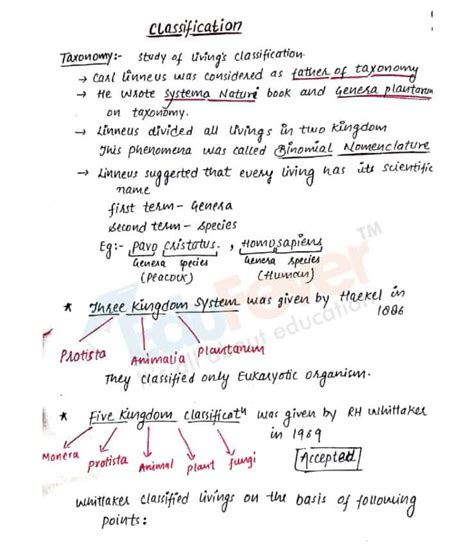 Classification
Taxonomy:- Study of living's classification.
→ Carl Linneus was considered as father of taxonomy
→ He wrote Systema Naturi book and Genera plantarum
on taxonomy.
→ Linneus divided all livings in two kingdom
This phenomena was called Binomial Nomenclature
→ Linneus suggested that every living has its scientific
name
first term - Genera
second term - species
Eg:- Pavo Cristatus. , Homosapiens
Genera species Genera species
(Peacock) (Human)
TM
EduFever
all about education
* Three kingdom System was given by Haekel in
1886
Protista Animalia Plantarum
They classified only Eukaryotic organism.
* Five kingdom classificatⁿ was given by RH Whittaker
in 1969
Monera protista Animal plant fungi
Accepted
Whittaker classified livings on the basis of following
points: